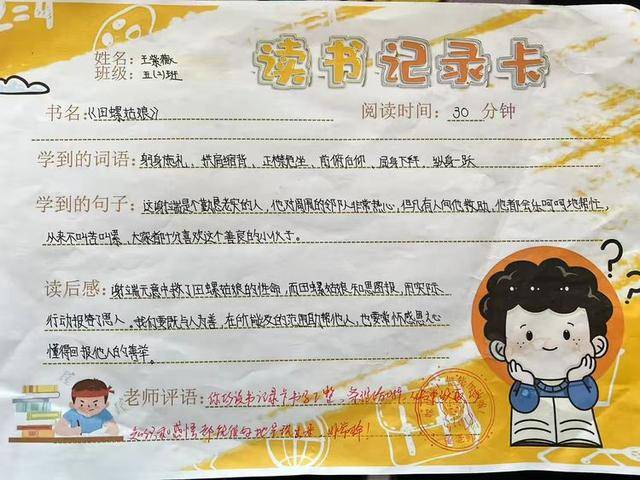 读书记录卡
姓名: 王紫薇
班级: 五(2)班
书名:《田螺姑娘》 阅读时间: 30 分钟
学到的词语: 躬身施礼、拱肩缩背、正襟危坐、前俯后仰、屈身下拜、纵身一跃
学到的句子: 这谢端是个勤恳老实的人,他对周围的邻队非常热心,但凡有人间他救助,他都会乐呵呵地帮忙,
从来不叫苦叫累,大家都十分喜欢这个善良的小伙子。
读后感: 谢端无意中救了田螺姑娘的性命,而田螺姑娘知恩图报,用实际
行动报答了恩人。我们要既与人为善,在所能及的范围助帮他人,也要常怀感恩之心
懂得回报他人的善举。
老师评语: 你的读书记录卡书写工整,条理
知识和感悟都